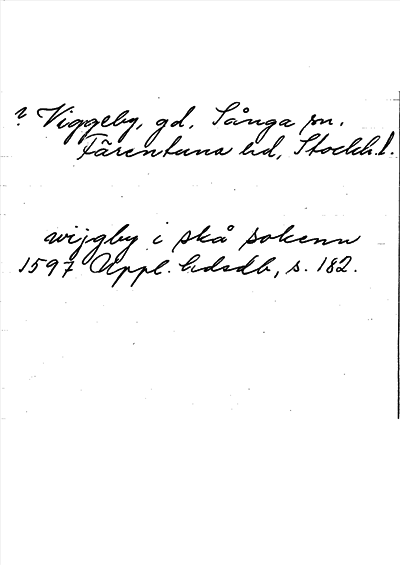 ? Viggeby, gd, Sånga sn.
Färentuna hd, Stockh. l.
wijgby i skå sokenn
1597 Uppl. hdsdb, s. 182.